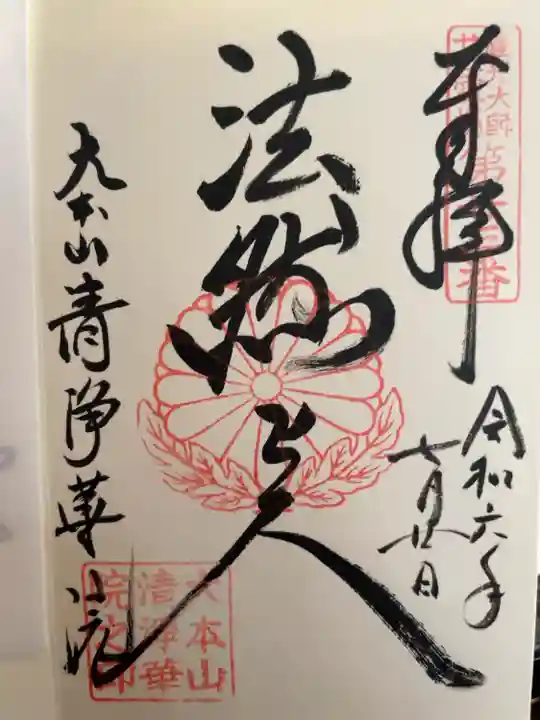 奉拝
圓光大師
第廿三番
令和六年
七月廿日
法然上人
大本山清浄華院
大本山
清浄華
院之印